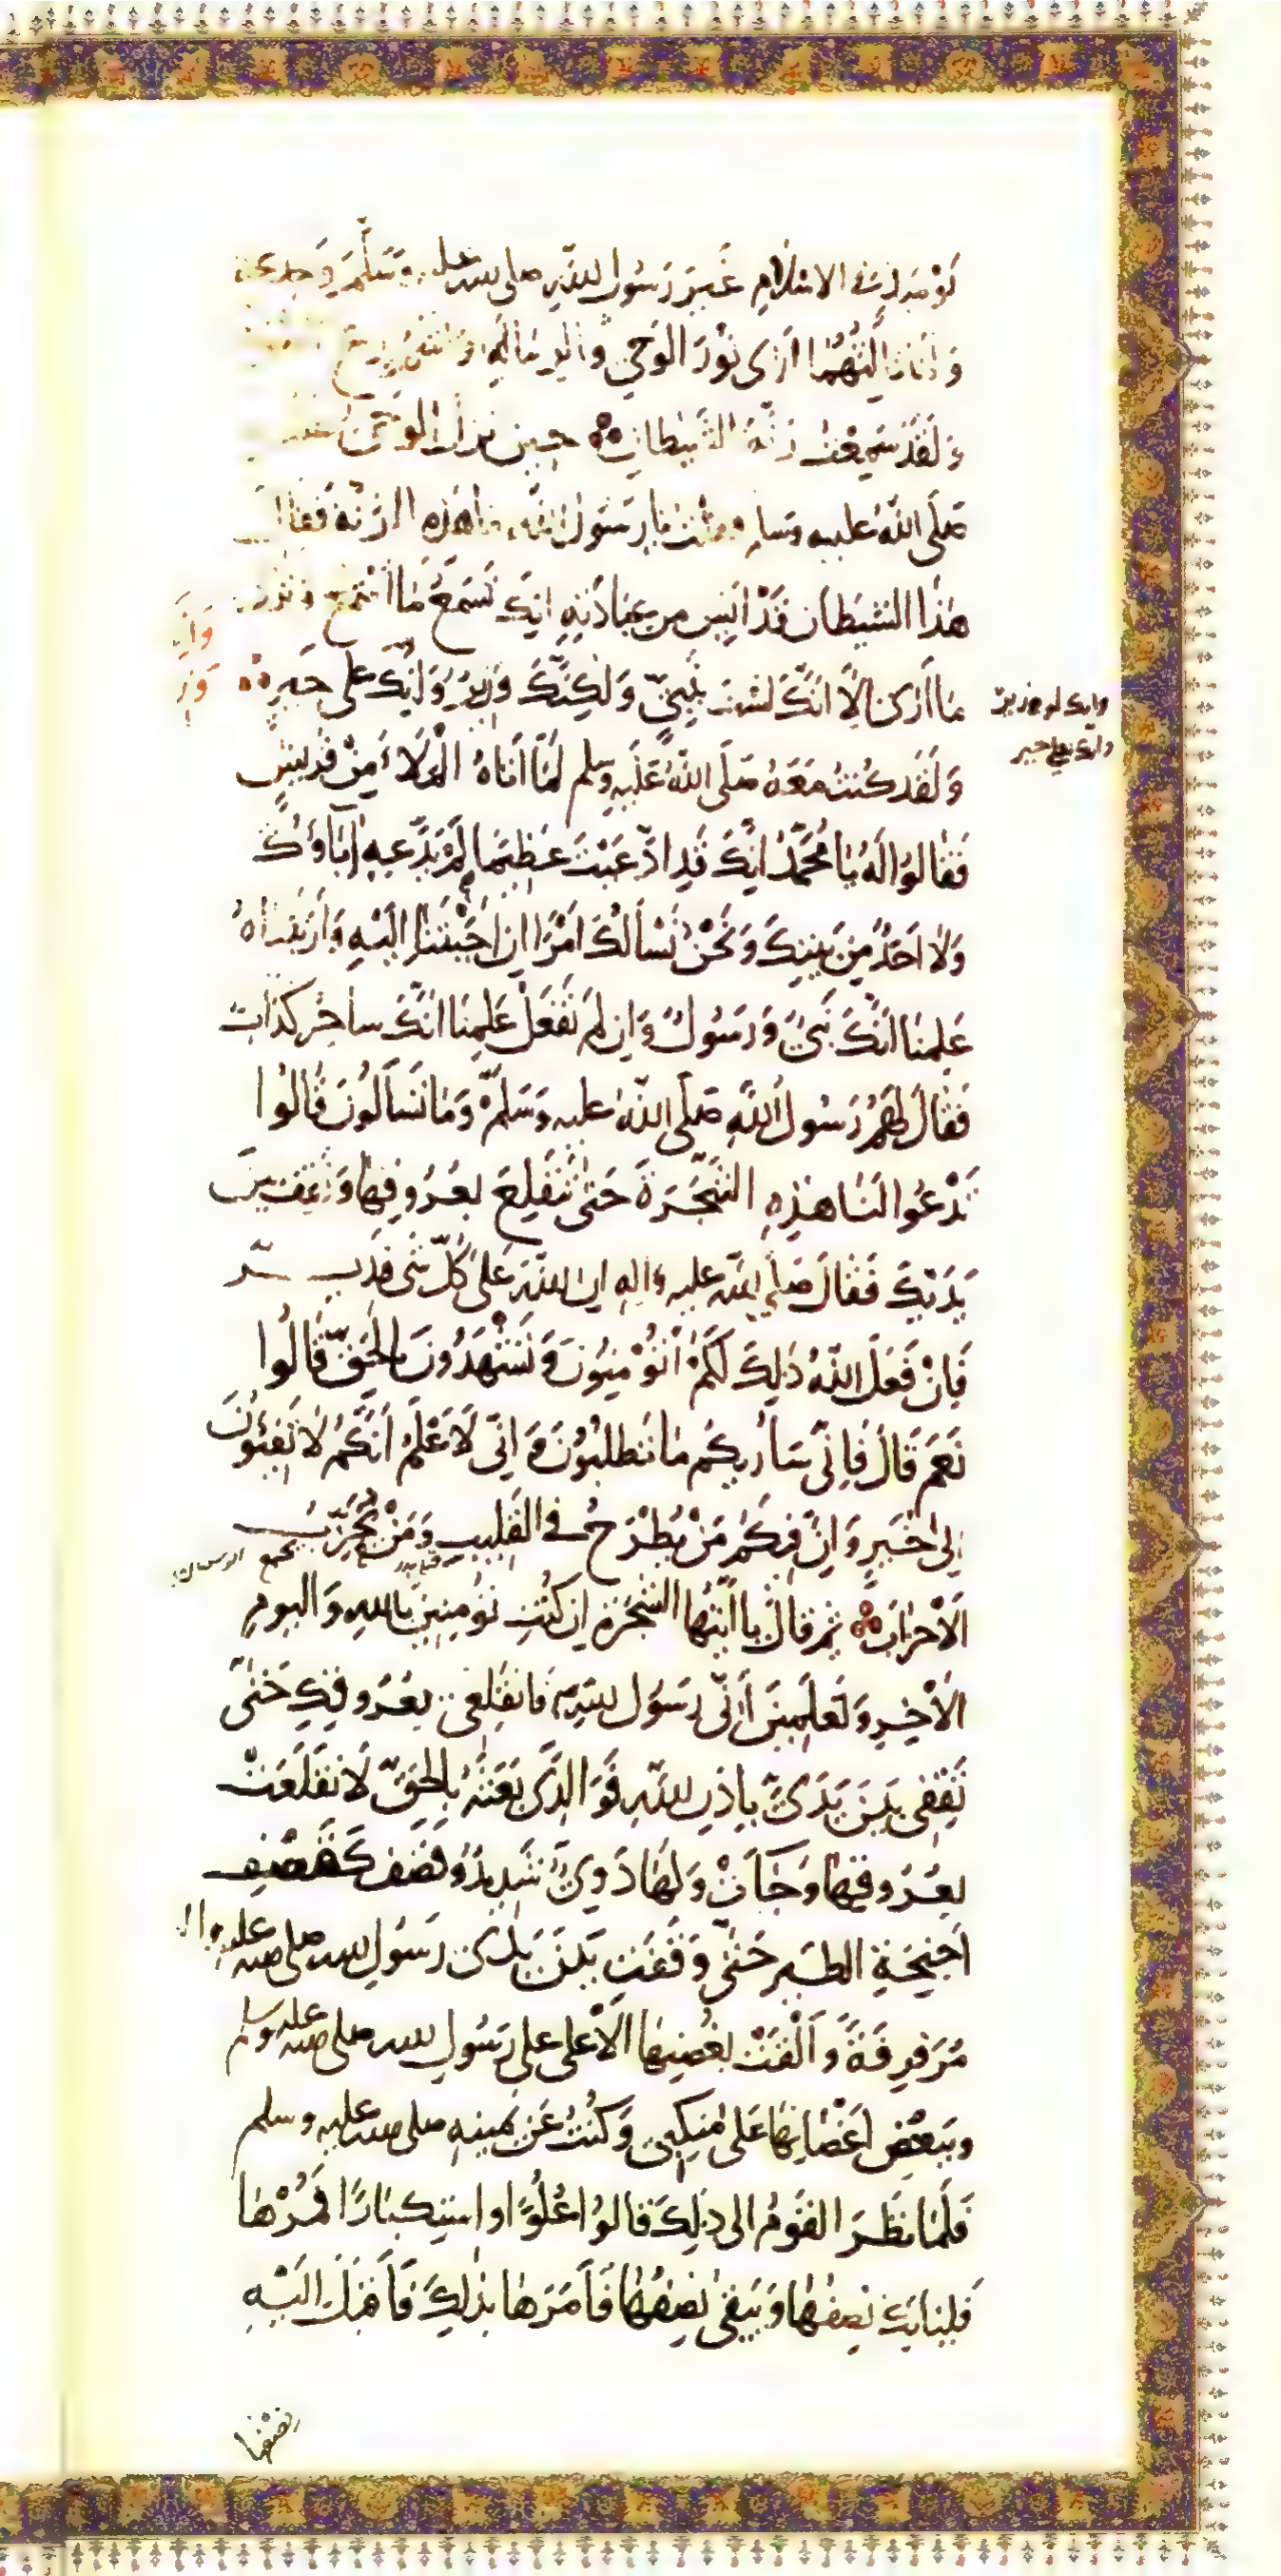 يَوْمَئِذٍ فِي الاِسْلَامِ غَيْرَ رَسُولِ اللّهِ صلى الله عليه وَسَلَّمَ وَخديجة
وَأَنَا ثَالِثُهُمَا أَرَى نُورَ الوَحْيِ وَالرِّسَالَةِ وَأَشُمُّ رِيحَ
وَلَقَدْ سَمِعْتُ رَنَّةَ الشَّيطَانِ حِينَ نَزَلَ الوَحْيُ
صَلَّى اللّهُ عليه وسلم فقلت يَا رَسُولَ اللّه مَا هَذِهِ الرَّنَّة فَقَالَ
هَذَا الشَّيْطَان قَدْ أَيِسَ مِن عِبَادَتِهِ إِنَّكَ تَسْمَعُ مَا أَسْمَعُ وَتَرَى
مَا أَرَى إِلَّا أَنَّكَ لَسْتَ بِنَبِيٍّ وَلَكِنَّكَ وَزِيرٌ وَإِنَّكَ عَلَى خَيرٍ
وانك لوزير
وانك لعلى خير
وَلَقَد كُنْتُ مَعَهُ صَلَّى اللّهُ عَلَيْهِ وسلم لَمَّا أَتَاهُ الْمَلَاءُ مِنْ قُرَيْشٍ
فَقَالُوا لَهُ يَا مُحَمَّدُ إِنَّكَ قَدِ ادَّعَيْتَ عَظِيمًا لَمْ يَدَّعِهِ آبَاؤُكَ
وَلَا أَحَدٌ مِنْ بَيْتِكَ وَنَحْنُ نَسْأَلُكَ أَمْرًا إِنْ أَجَبْتَنَا إِلَيْهِ وَأَرَيْتَنَاهُ
عَلِمْنَا أَنَّكَ نَبِيٌّ وَرَسُولٌ وَإِن لَم تَفْعَلْ عَلِمْنَا أَنَّكَ سَاحِرٌ كَذَّابٌ
فَقَالَ لَهُمْ رَسُولُ اللّهِ صَلَّى اللّهُ عليه وَسَلَّم وَمَا تَسْأَلُونَ قَالُوا
تَدْعُو لَنَا هَذِهِ الشَّجَرَةَ حَتَّى تَنْقَلِعَ بِعُرُوقِهَا وَتَقِفَ بَيْنَ
يَدَيْكَ فَقَالَ صَلَّى اللّه عليه وآله إِنَّ اللّهَ عَلَى كُلِّ شَيءٍ قَدِيرٌ
فَإِنْ فَعَلَ اللّهُ ذَلِكَ لَكُمْ أَتُؤْمِنُونَ وَتَشْهَدُونَ بِالحَقِّ قَالُوا
نَعَم قَالَ فَإِنِّي سَأُرِيكُم مَا تَطْلُبُونَ وَإِنِّي لَأَعْلَمُ أَنَّكُمْ لَا تَفِيئُونَ
إِلَى خَيْرٍ وَإِنَّ فِيكُم مَنْ يُطْرَحُ فِي الْقَلِيبِ وَمَنْ يُحَزِّبُ
الْأَحْزَابَ ثُمَّ قَالَ يَا أَيَّتُهَا الشَّجَرَةُ إِن كُنْتِ تُؤْمِنِينَ بِاللهِ وَالْيَومِ
الْآخِرِ وَتَعْلَمِينَ أَنِّي رَسُولُ اللّهِ فَانْقَلِعِي بِعُرُوقِكِ حَتَّى
تَقِفِي بَيْنَ يَدَيَّ بِإِذْنِ اللّهِ فَوَ الَّذِي بَعَثَهُ بِالحَقِّ لَانْقَلَعَتْ
بِعُرُوقِهَا وَجَاءَتْ وَلَهَا دَوِيٌّ شَدِيدٌ وَقَصْفٌ كَقَصْفِ
أَجْنِحَةِ الطَّيرِ حَتَّى وَقَفَتْ بَيْنَ يَدَيْ رَسُولِ الله صلى الله عليه وال
مُرَفْرِفَةً وَأَلْقَتْ بِغُصْنِهَا الْأَعْلَى عَلَى رَسُولِ الله صلى الله عليه وسلم
وَبِبَعْضِ أَغْصَانِهَا عَلَى مَنْكِبِي وَكُنْتُ عَن يَمِينِهِ صلى الله عليه وسلم
فَلَمَّا نَظَرَ الْقَوْمُ إِلَى ذَلِكَ قَالُوا عُلُوًّا وَاسْتِكْبَارًا فَمُرْهَا
فَلْيَأْتِكَ نِصْفُهَا وَيَبْقَى نِصْفُهَا فَأَمَرَهَا بِذَلِكَ فَأَقْبَلَ إِلَيْهِ
نصْفُهَا